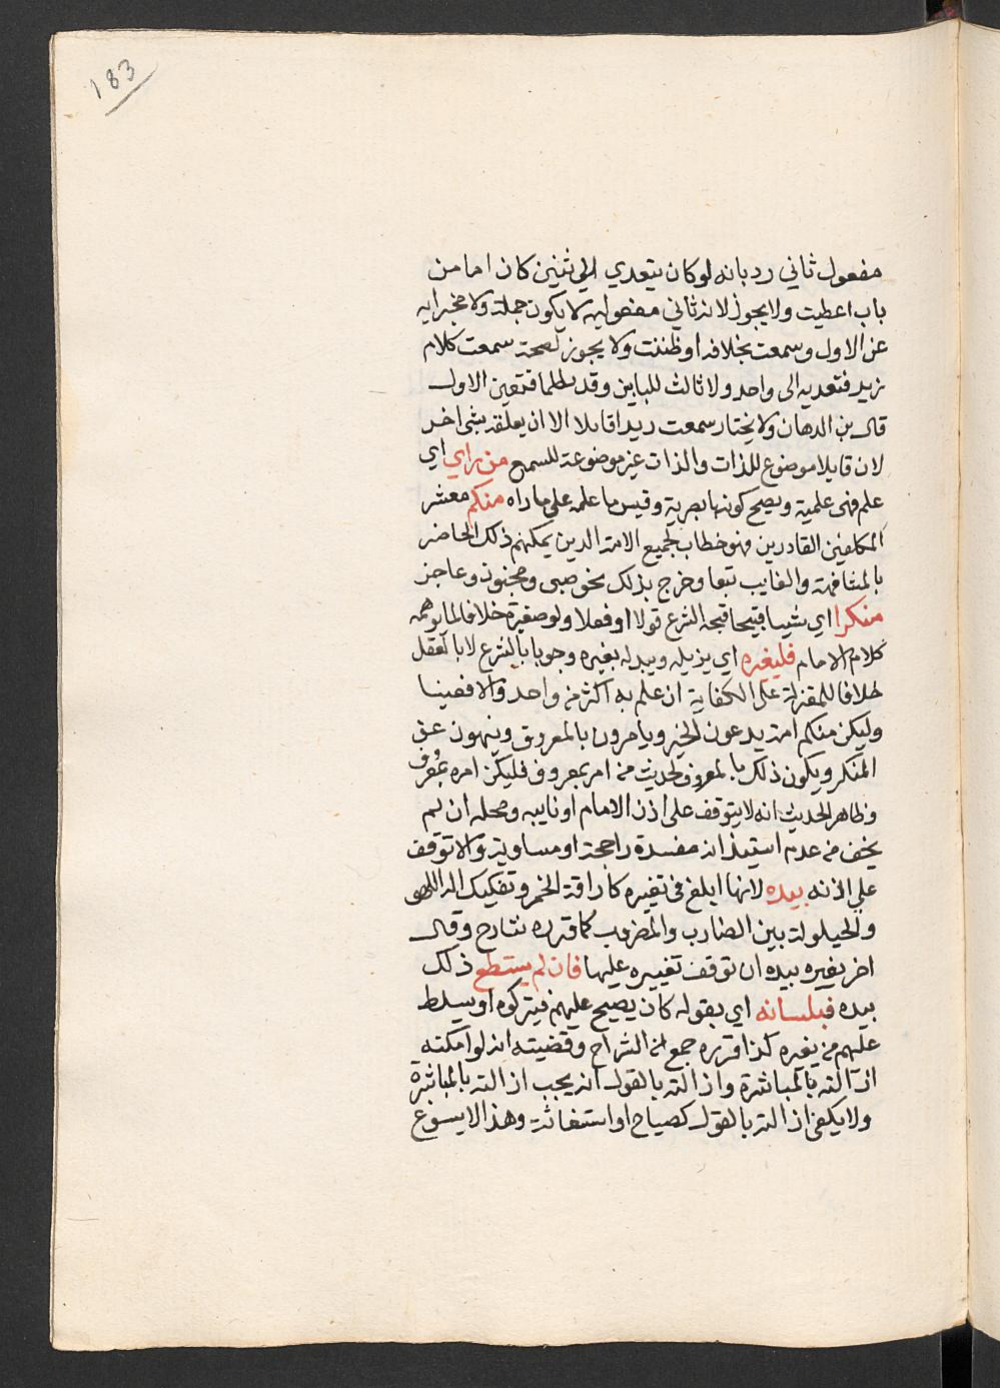 183
مفعول ثاني رد بانه لو كان يتعدي الي ثنين كان اما من
باب اعطيت ولا يجوز لان ثاني مفعوليه لا يكون جملة ولا مخبرا به
عن الاول وسمعت بخلافه او ظننت ولا يجوز لصحة سمعت كلام
زيد فتعديه الى واحد ولا ثالث للبابين وقد بطلا فتعين الاول
قال بن الدهان ولا يختار سمعت زيدا قايلا الا ان يعلقه بشي اخر
لان قايلا موضوع للذات والذات غير موضوعة للسمع من راي اي
علم فهى علمية ويصح كونها بصرية وقيس ما علمه على ما راه منكم معشر
المكلفين القادرين فهو خطاب لجميع الامة الذين يمكنهم ذلك الحاضر
بالمشافهة والغايب تبعا وخرج بذلك نحو صبي ومجنون وعاجز
منكرا اي شيا قبيحا قبحه الشرع قولا او فعلا ولو صغيرة خلافا لما يوهمه
كلام الامام فليغيره اي يزيله ويبدله بغيره وجوبا بالشرع لا بالعقل
خلافا للمعتزلة على الكفاية ان علم به اكثر من واحد والا فعينا
وليكن منكم امة يدعون الي الخير ويامرون بالمعروف وينهون عن
المنكر ويكون ذلك بالمعروف لحديث من امر بمعروف فليكن امره بمعروف
وظاهر الحديث انه لا يتوقف على اذن الامام او نايبه ومحله ان لم
يخف من عدم استيذانه مفسدة راجحة او مساوية والا توقف
على اذنه بيده لانها ابلغ في تغييره كاراقة الخمر وتفكيك الة اللهو
والحيلولة بين الضارب والمضروب كما قرره شارح وقال
اخر يغيره بيده ان توقف تغييره عليها فان لم يستطع ذلك
بيده فبلسانه اي بقوله كان يصيح عليهم فيتركوه او يسلط
عليهم من يغيره كذا قرره جمع من الشراح وقضيته انه لو امكنه
ازالته بالمباشرة وازالته بالقول انه يجب ازالته بالمباشرة
ولا يكفي ازالته بالقول كصياح او استغاثة وهذا لا يسوغ